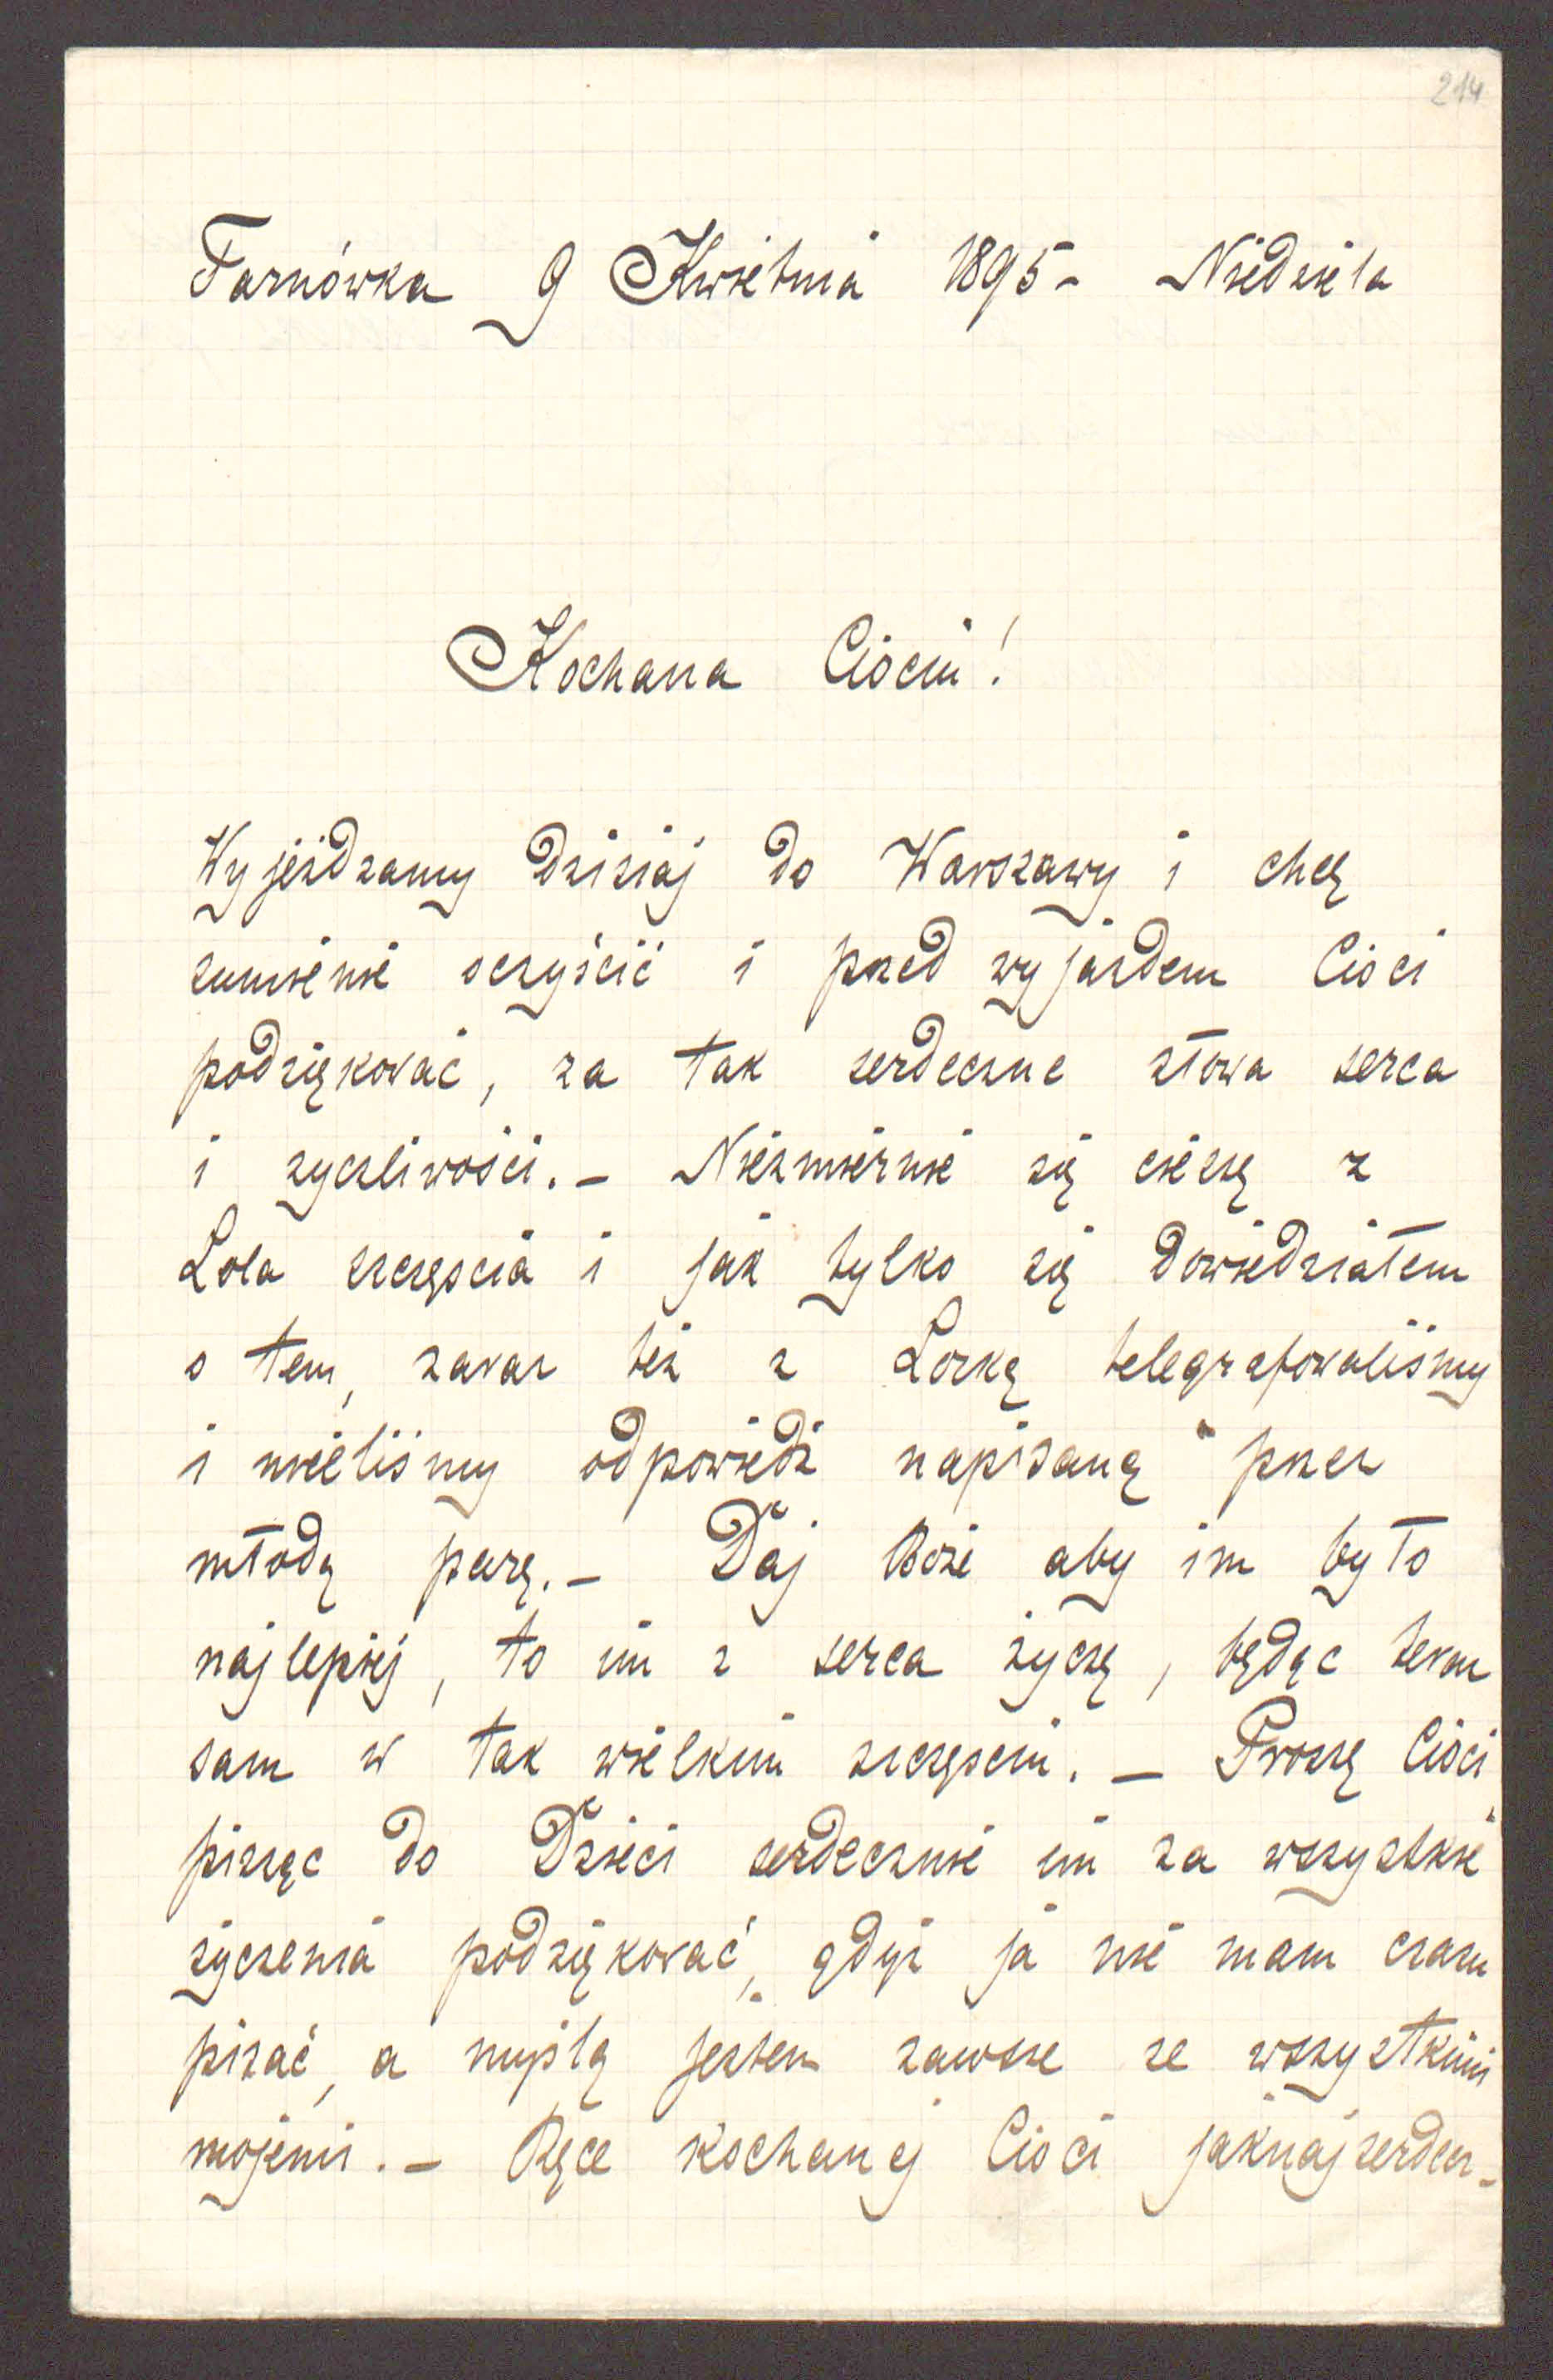 214
Tarnówka 9 Kwietnia 1895 - Niedziela
Kochana Ciociu!
Wyjeżdzamy dzisiaj do Warszawy i chcę
sumienie oczyścić i przed wyjazdem Cioci
podziękować, za tak serdeczne słowa serca
i życzliwości. - Niezmiernie się cieszę z
Lola szczęscia i jak tylko się dowiedziałem
o tem, zaraz też z Lorką telegrafowaliśmy
i mieliśmy odpowiedź napisaną przez
młodą parę. - Daj Boże aby im było
najlepiej, to im z serca życzę, będąc teraz
sam w tak wielkim szczęsciu. - Proszę Cioci,
pisząc do Dzieci serdecznie im za wszystkie
życzenia podziękować, gdyż ja nie mam czasu
pisać, a myślą jestem zawsze ze wszystkimi
mojemi. - Ręce kochanej Cioci jaknajserdecz-